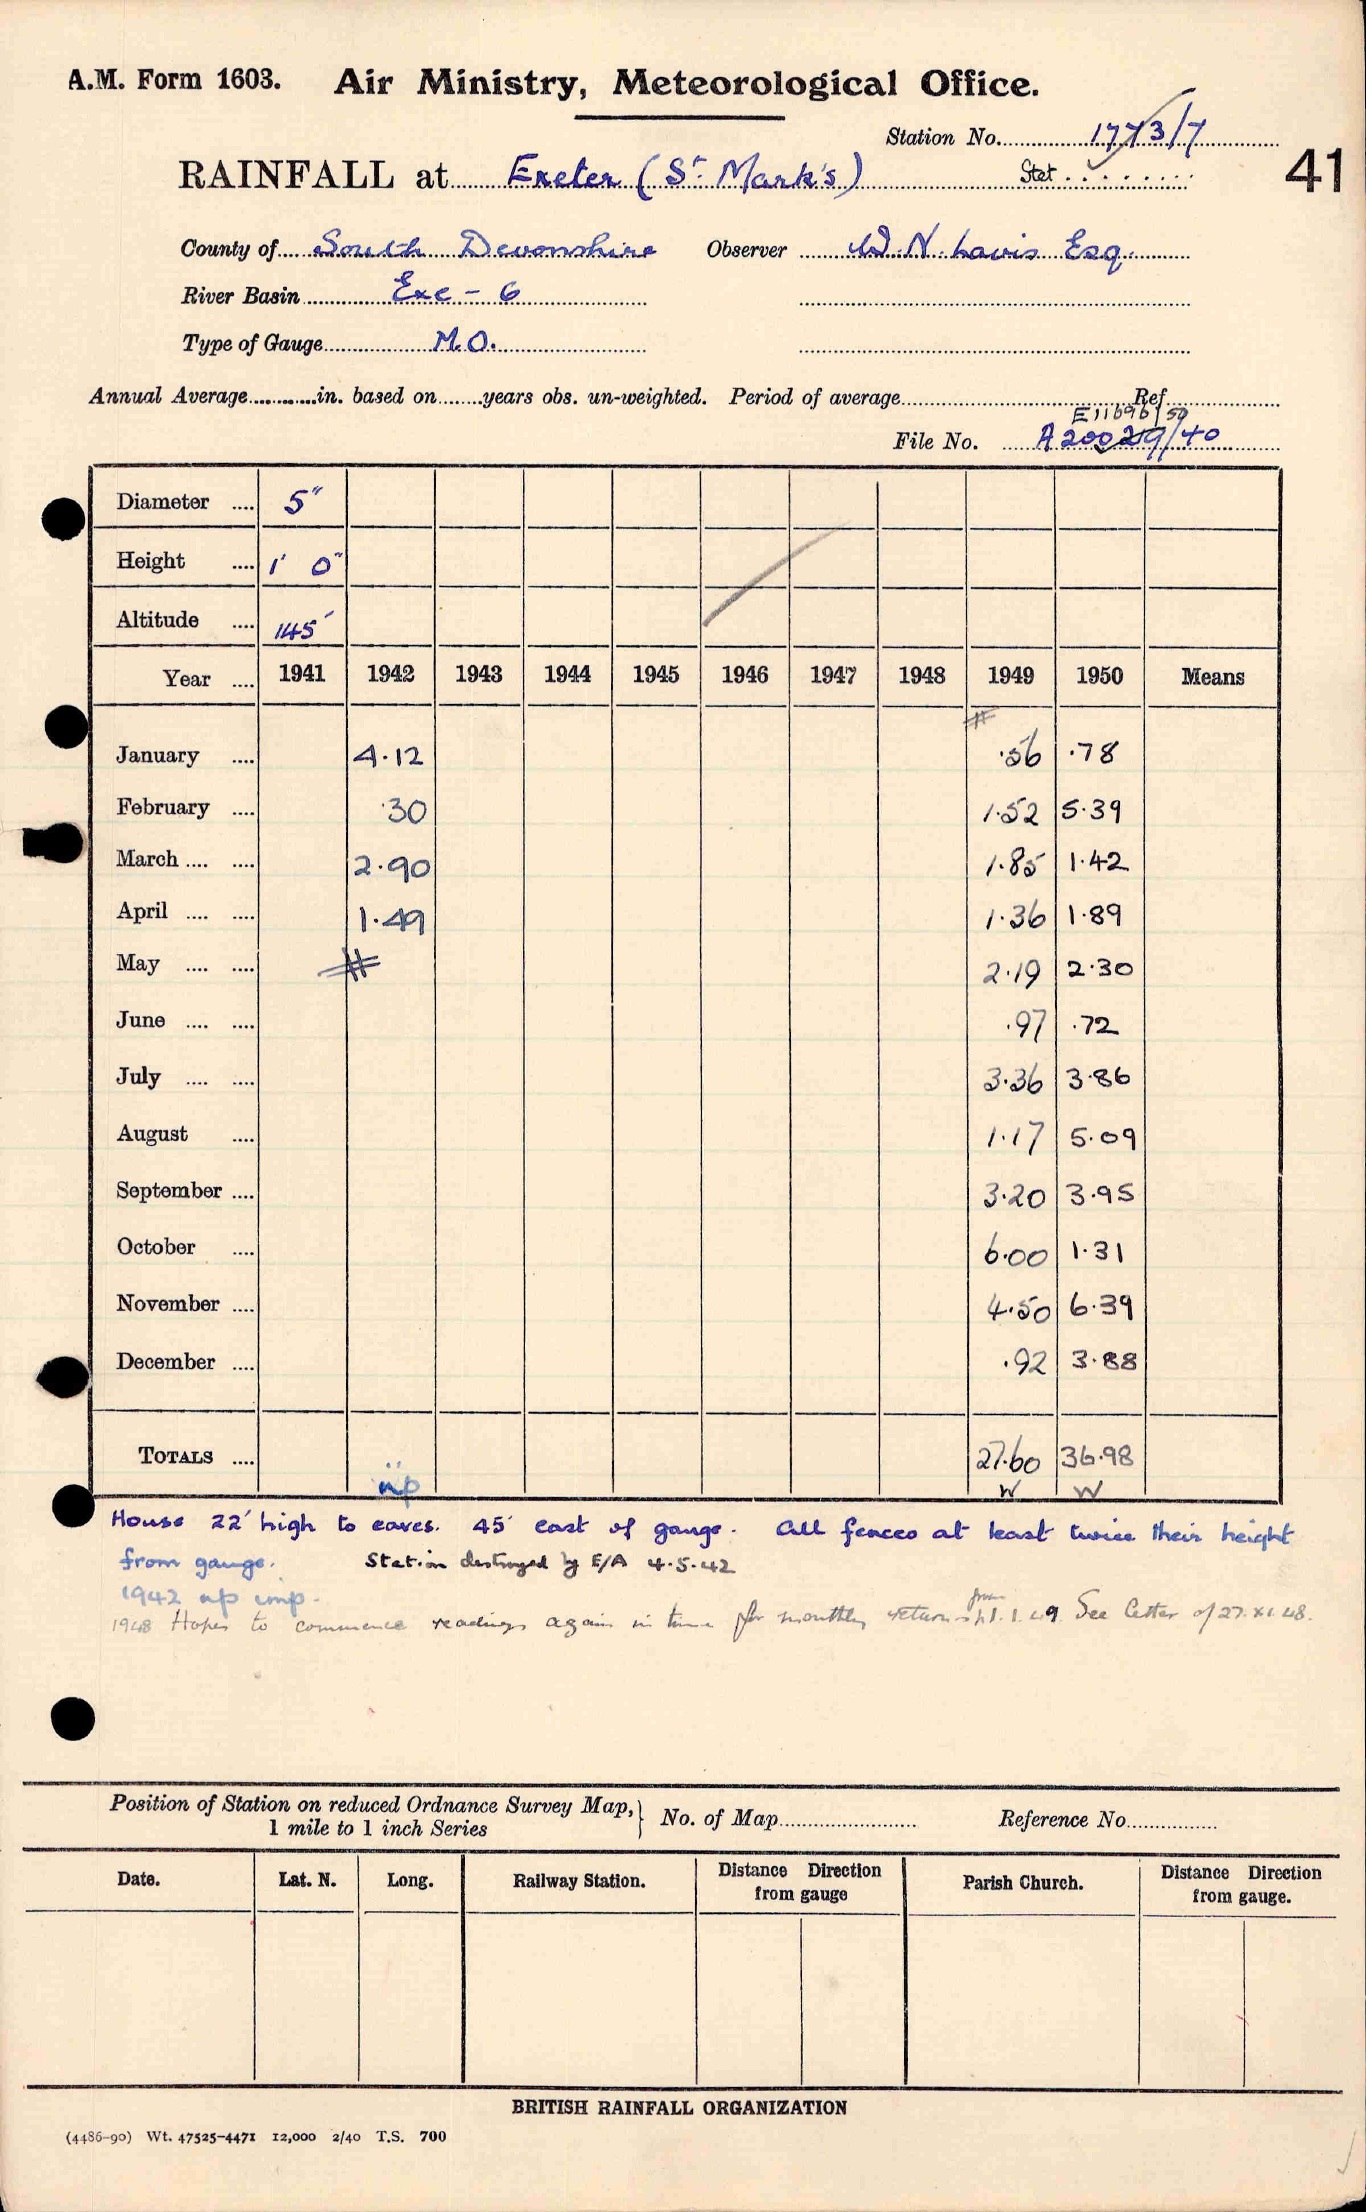 A.M. Form 1603. Air Ministry, Meteorological Office.
Station No. 1773/7
41
RAINFALL at Exeter (St Mark's) Stet
County of South Devonshire Observer W. N. Lavis Esq.
River Basin Exe - 6
Type of Gauge M.O.
Annual Average in. based on years obs. un-weighted. Period of average Ref
E11696/50
File No. A200229/40
Diameter .... 5"
Height .... 1' 0"
Altitude .... 145'
Year .... 1941 1942 1943 1944 1945 1946 1947 1948 1949 1950 Means
#
January .... 4.12 .56 .78
February .... .30 1.52 5.39
March .... .... 2.90 1.85 1.42
April .... .... 1.49 1.36 1.89
May .... .... # 2.19 2.30
June .... .... .97 .72
July .... .... 3.36 3.86
August .... 1.17 5.09
September .... 3.20 3.95
October .... 6.00 1.31
November .... 4.50 6.39
December .... .92 3.88
TOTALS .... 27.60 36.98
np W W
House 22' high to eaves. 45' east of gauge. All fences at least twice their height
from gauge. Station destroyed by E/A 4.5.42
1942 np imp.
1948 Hopes to commence readings again in time for monthly returns from 1.1.49. See letter of 27.XI.48.
Position of Station on reduced Ordnance Survey Map,} No. of Map Reference No.
1 mile to 1 inch Series
Date. Lat. N. Long. Railway Station. Distance Direction from gauge Parish Church. Distance Direction from gauge.
BRITISH RAINFALL ORGANIZATION
(4486-90) Wt. 47525-4471 12,000 2/40 T.S. 700